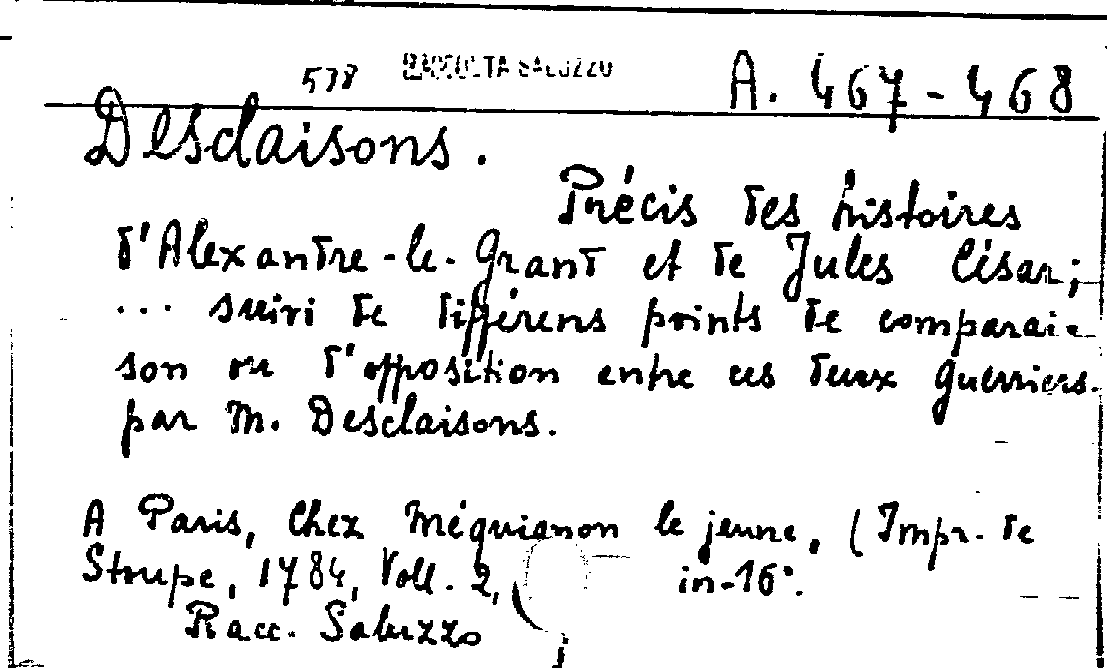 578 RACCOLTA SALUZZO A. 467-468
Desclaisons.
Précis des histoires
d'Alexandre-le-Grand et de Jules César;
... suivi de différens points de comparai-
son ou d'opposition entre ces deux guerriers.
par M. Desclaisons.
A Paris, Chez Méquignon le jeune, (Impr. de
Stoupe, 1784, Voll. 2, in-16°.
Racc. Saluzzo